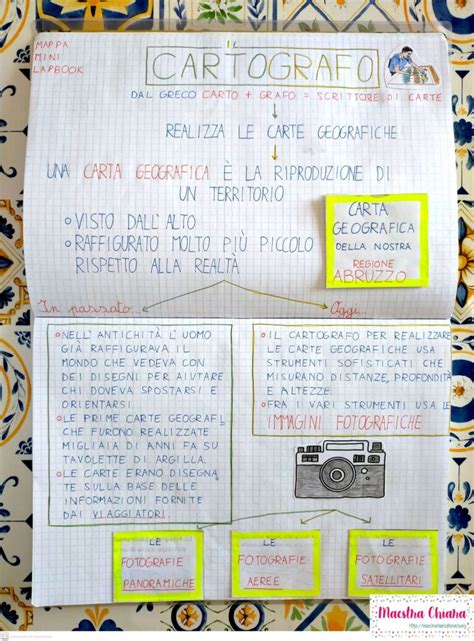 MAPPA
MINI
LAPBOOK
IL
CARTOGRAFO
DAL GRECO CARTO + GRAFO = SCRITTORE DI CARTE
REALIZZA LE CARTE GEOGRAFICHE
UNA CARTA GEOGRAFICA È LA RIPRODUZIONE DI
UN TERRITORIO
VISTO DALL'ALTO
RAFFIGURATO MOLTO PIÙ PICCOLO
RISPETTO ALLA REALTÀ
CARTA
GEOGRAFICA
DELLA NOSTRA
REGIONE
ABRUZZO
In passato...
Oggi...
NELL'ANTICHITÀ L'UOMO
GIÀ RAFFIGURAVA IL
MONDO CHE VEDEVA CON
DEI DISEGNI PER AIUTARE
CHI DOVEVA SPOSTARSI E
ORIENTARSI.
LE PRIME CARTE GEOGRAFI
CHE FURONO REALIZZATE
MIGLIAIA DI ANNI FA SU
TAVOLETTE DI ARGILLA.
LE CARTE ERANO DISEGNA
TE SULLA BASE DELLE
INFORMAZIONI FORNITE
DAI VIAGGIATORI.
IL CARTOGRAFO PER REALIZZARE
LE CARTE GEOGRAFICHE USA
STRUMENTI SOFISTICATI CHE
MISURANO DISTANZE, PROFONDITÀ
E ALTEZZE.
FRA I VARI STRUMENTI USA LE
IMMAGINI FOTOGRAFICHE
LE
FOTOGRAFIE
PANORAMICHE
LE
FOTOGRAFIE
AEREE
LE
FOTOGRAFIE
SATELLITARI
Maestra Chiara